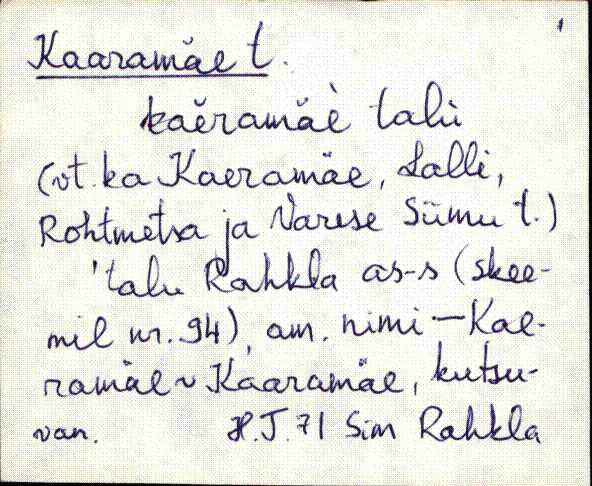 Kaaramäe t.
kaĕramäè talu
(vt. ka Kaeramäe, Lalli,
Rohtmetsa ja Varese Siimu t.)
'talu Rahkla as-s (skee-
mil nr. 94), am. nimi — Kae-
ramäe ~ Kaaramäe, kutsu-
van. H.J. 71 Sim Rahkla